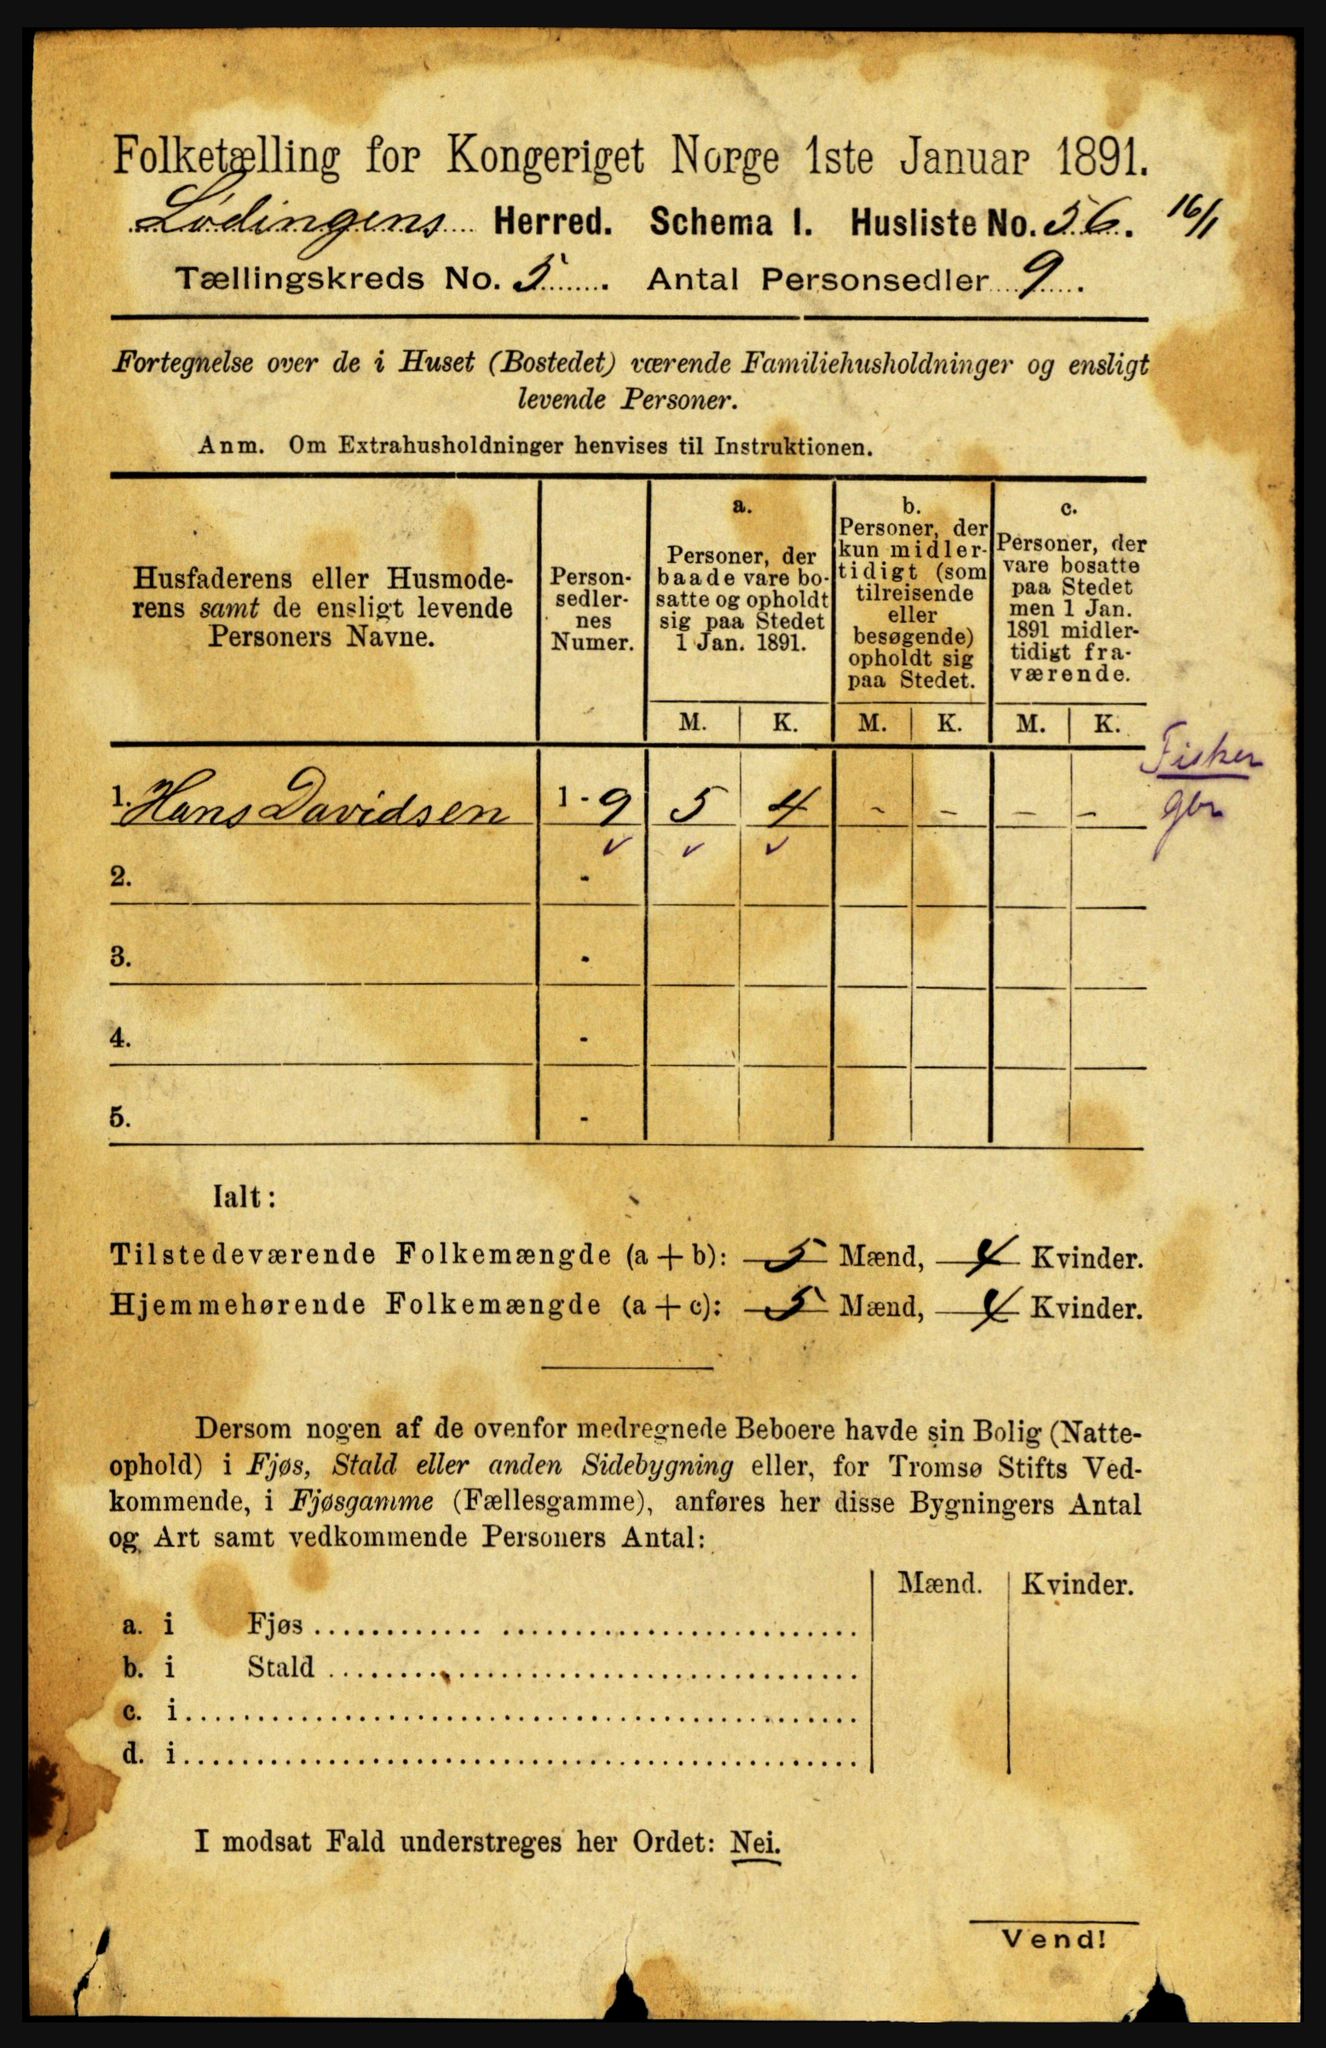 Folketælling for Kongeriget Norge 1ste Januar 1891.
Lødingens Herred. Schema I. Husliste No. 56. 16/1
Tællingskreds No. 5. Antal Personsedler 9.
Fortegnelse over de i Huset (Bostedet) værende Familiehusholdninger og ensligt
levende Personer.
Anm. Om Extrahusholdninger henvises til Instruktionen.
Husfaderens eller Husmode-
rens samt de ensligt levende
Personers Navne.
Person-
sedler-
nes
Numer.
a.
Personer, der
baade vare bo-
satte og opholdt
sig paa Stedet
1 Jan. 1891.
b.
Personer, der
kun midler-
tidigt (som
tilreisende
eller
besøgende)
opholdt sig
paa Stedet.
c.
Personer, der
vare bosatte
paa Stedet
men 1 Jan.
1891 midler-
tidigt fra-
værende.
M. K. M. K. M. K.
Fisker
1. Hans Davidsen 1 - 9 5 4 - - - -
gbr
2. -
3. -
4. -
5. -
Ialt:
Tilstedeværende Folkemængde (a + b): 5 Mænd, 4 Kvinder.
Hjemmehørende Folkemængde (a + c): 5 Mænd, 4 Kvinder.
Dersom nogen af de ovenfor medregnede Beboere havde sin Bolig (Natte-
ophold) i Fjøs, Stald eller anden Sidebygning eller, for Tromsø Stifts Ved-
kommende, i Fjøsgamme (Fællesgamme), anføres her disse Bygningers Antal
og Art samt vedkommende Personers Antal:
Mænd. Kvinder.
a. i Fjøs
b. i Stald
c. i
d. i
I modsat Fald understreges her Ordet: Nei.
Vend!